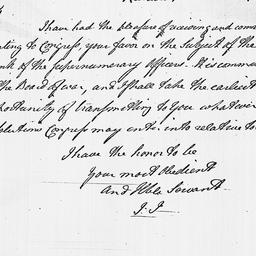 I have had the pleasure of receiving and commu
cating to Congress, your favor on the Subject of the
nk of the supernumerary Officers. It is commi
the Board of war, and I shall take the earliest
portunity of transmitting to You whatever
solutions Congress may enter into relative to
I have the honor to be
Your most obedient
and Hble Servant
J. J